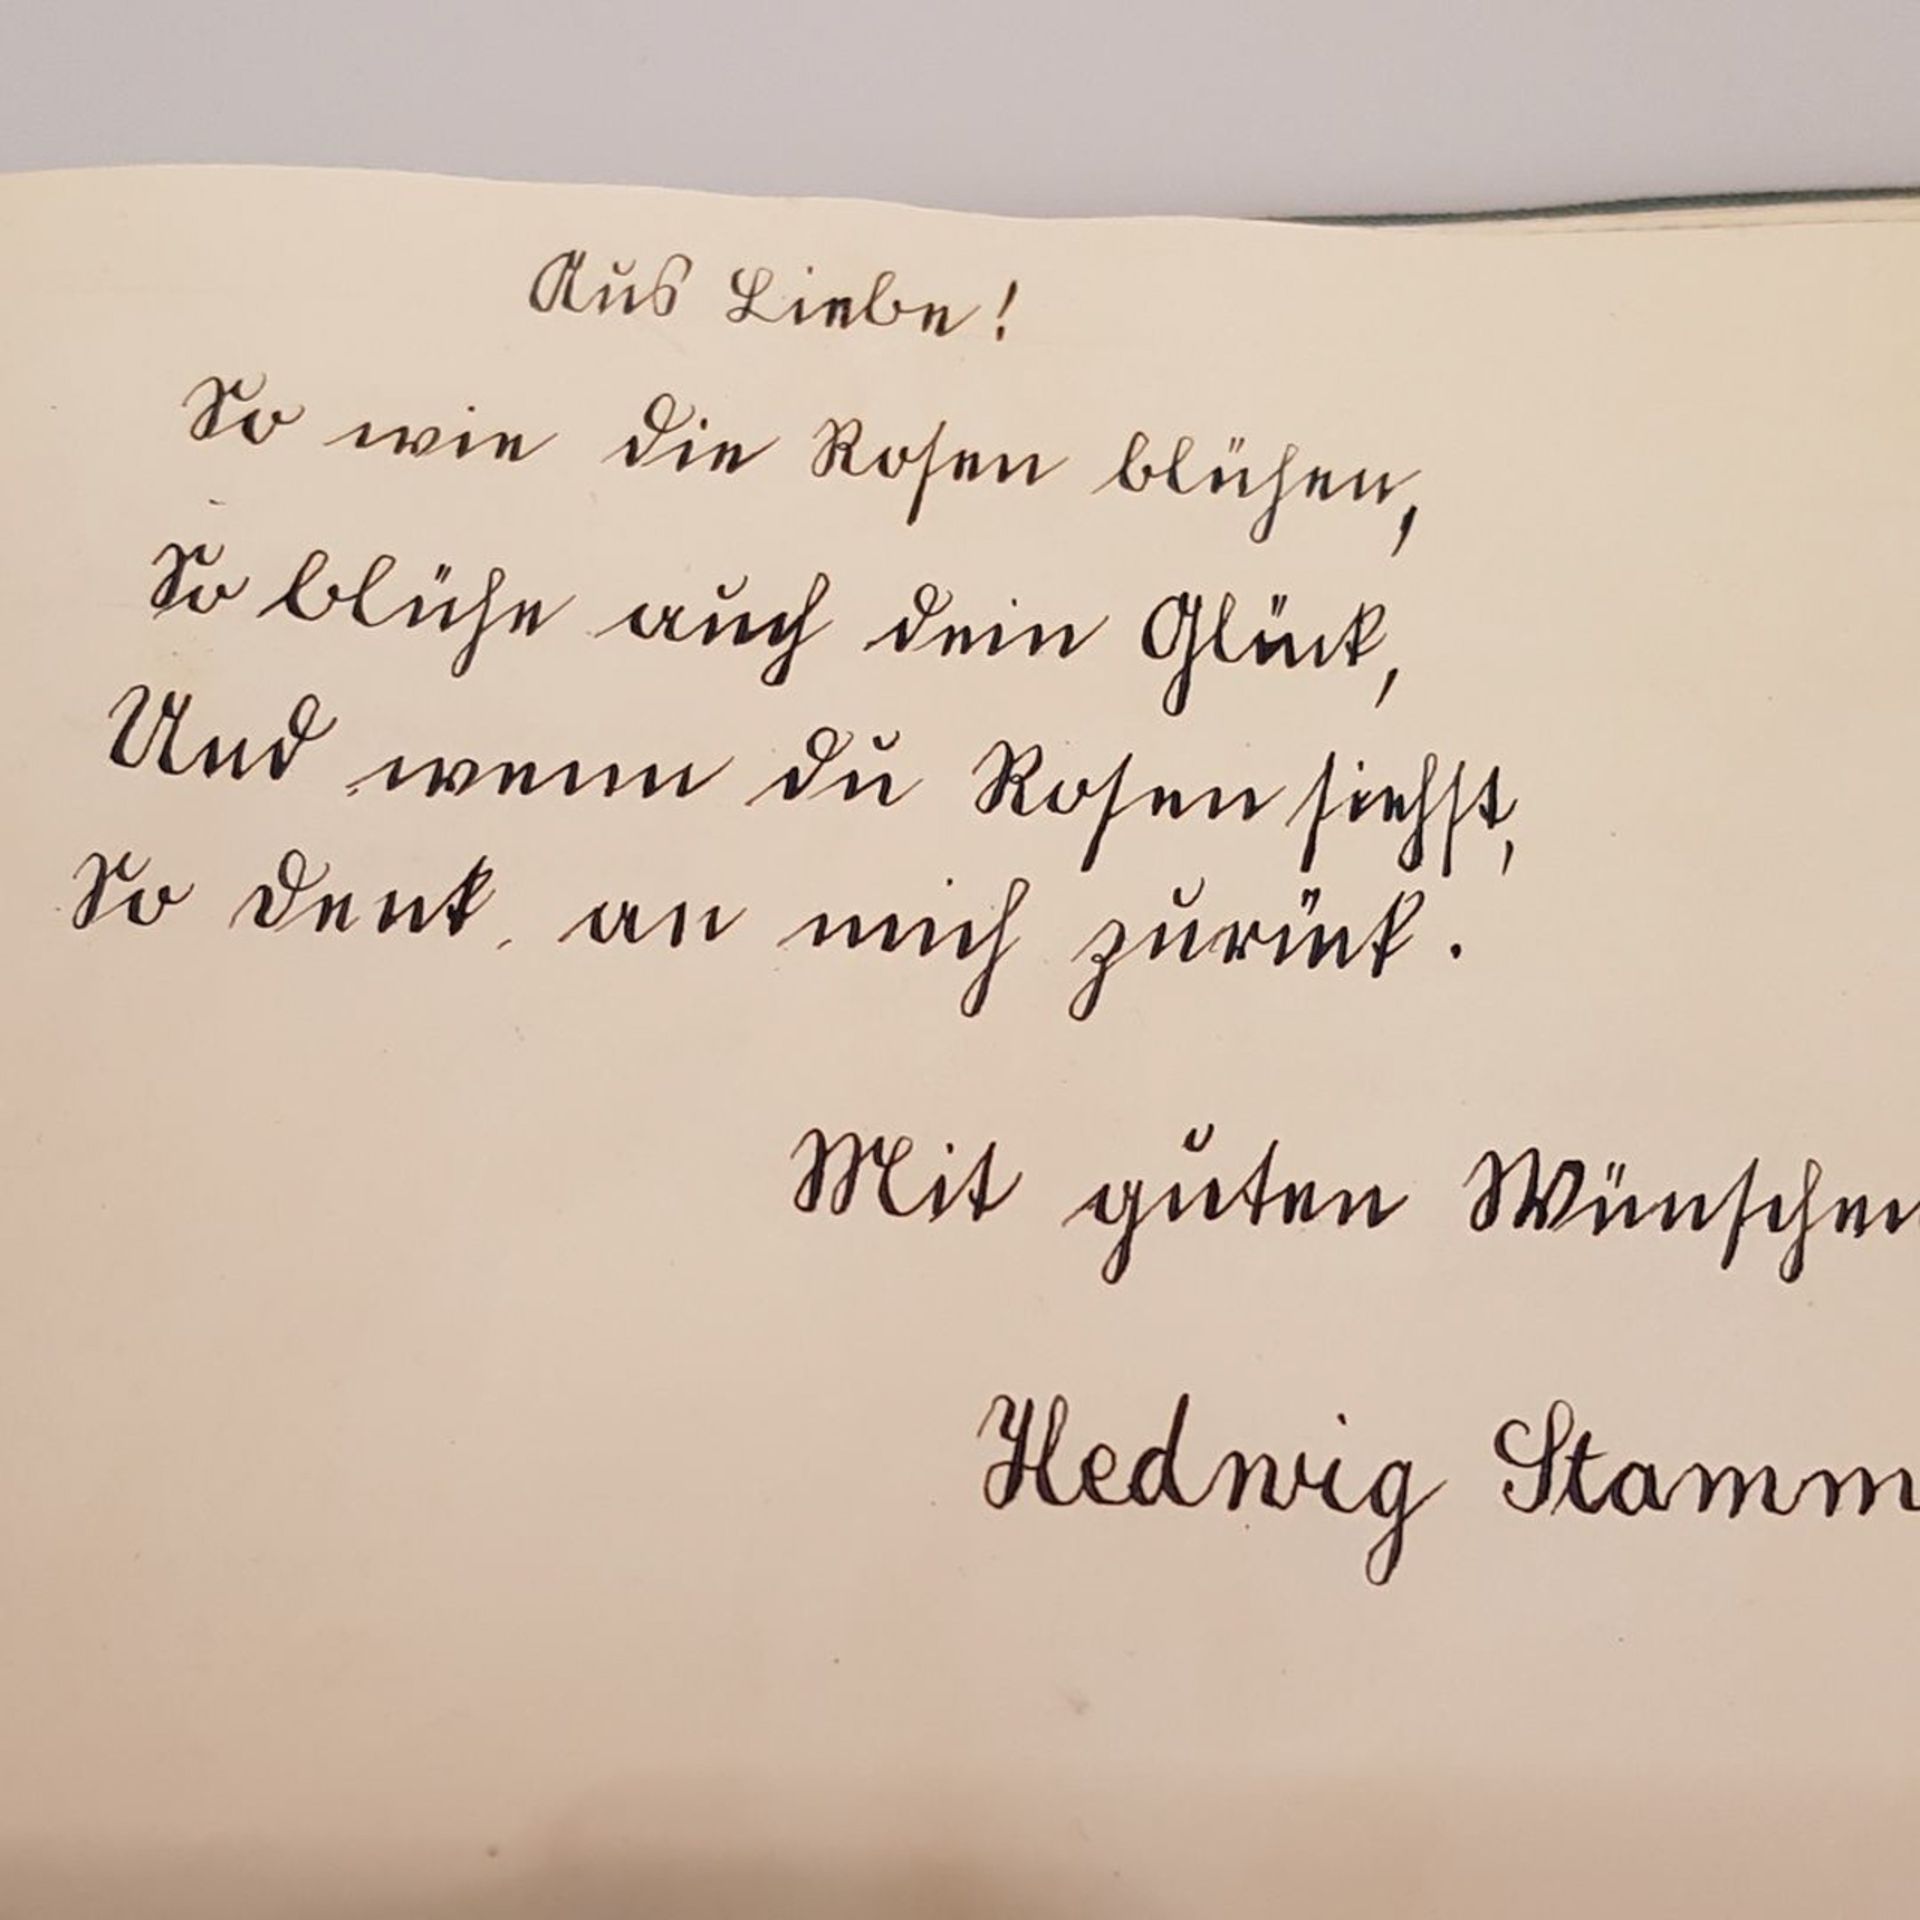 Aus Liebe!
So wie die Rosen blühen,
So blühe auch dein Glück,
Und wenn du Rosen siehst,
So denk an mich zurück.
Mit guten Wünschen
Hedwig Stamm